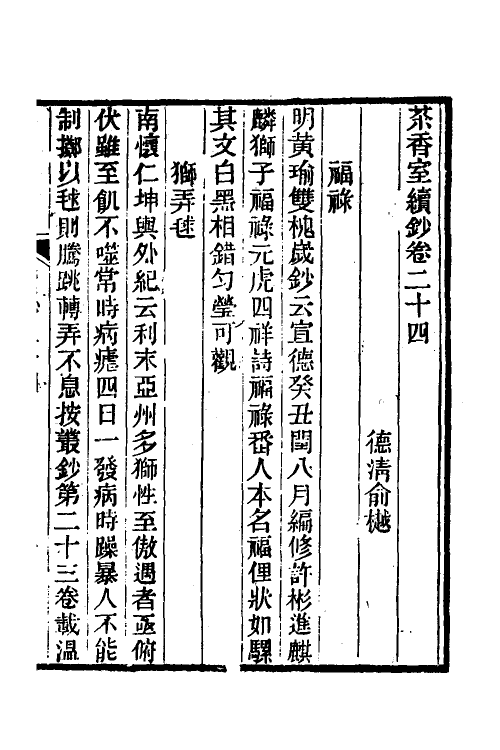 茶香室續鈔卷二十四
德清俞樾
福祿
明黃瑜雙槐歲鈔云宣德癸丑閏八月編修許彬進麒
麟獅子福祿元虎四祥詩福祿番人本名福俚狀如騾
其文白黑相錯勻瑩可觀
獅弄毬
南懷仁坤輿外紀云利末亞州多獅性至傲遇者亟俯
伏雖至飢不噬常時病瘧四日一發病時躁暴人不能
制擲以毬則騰跳轉弄不息按叢鈔第二十三卷載溫